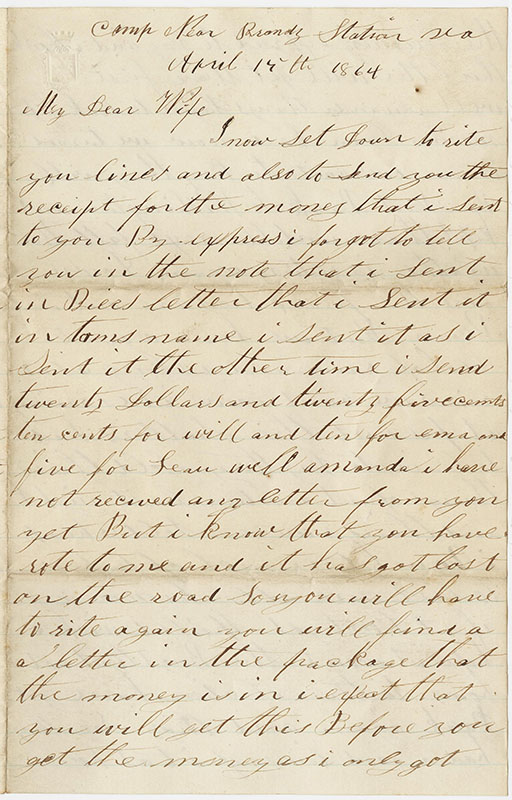 Camp Near Brandy Station va
April 15th 1864
My Dear Wife
I now set down to rite
you lines and also to send you the
receipt for the money that i sent
to you By express i forgot to tell
you in the note that i sent
in letter that i sent it
in toms name i sent it as i
sent it the other time i send
twenty dollars and twenty five cents
ten cents for will and ten for ema and
five for well amanda i have
not recived any letter from you
yet But i know that you have
rote to me and it has got lost
on the road so you will have
to rite again you will find a
a letter in the package that
the money is in i expect that
you will get this Before you
get the money as i only got